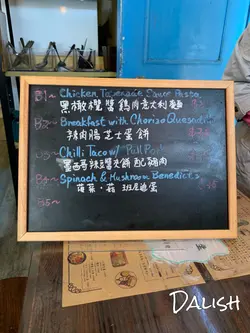 B1~ Chicken Tapenade Sauce Pasta
黑橄欖醬鷄肉意大利麵
B2~ Breakfast with Chorizo Quesadilla
辣肉腸芝士蛋餅
B3~ Chilli Taco w/ Pull Pork
墨西哥辣豆醬夾餅配豬肉
B4~ Spinach & Mushroom Benedict's
菠菜·菇 班尼迪蛋
B5~
DALISH